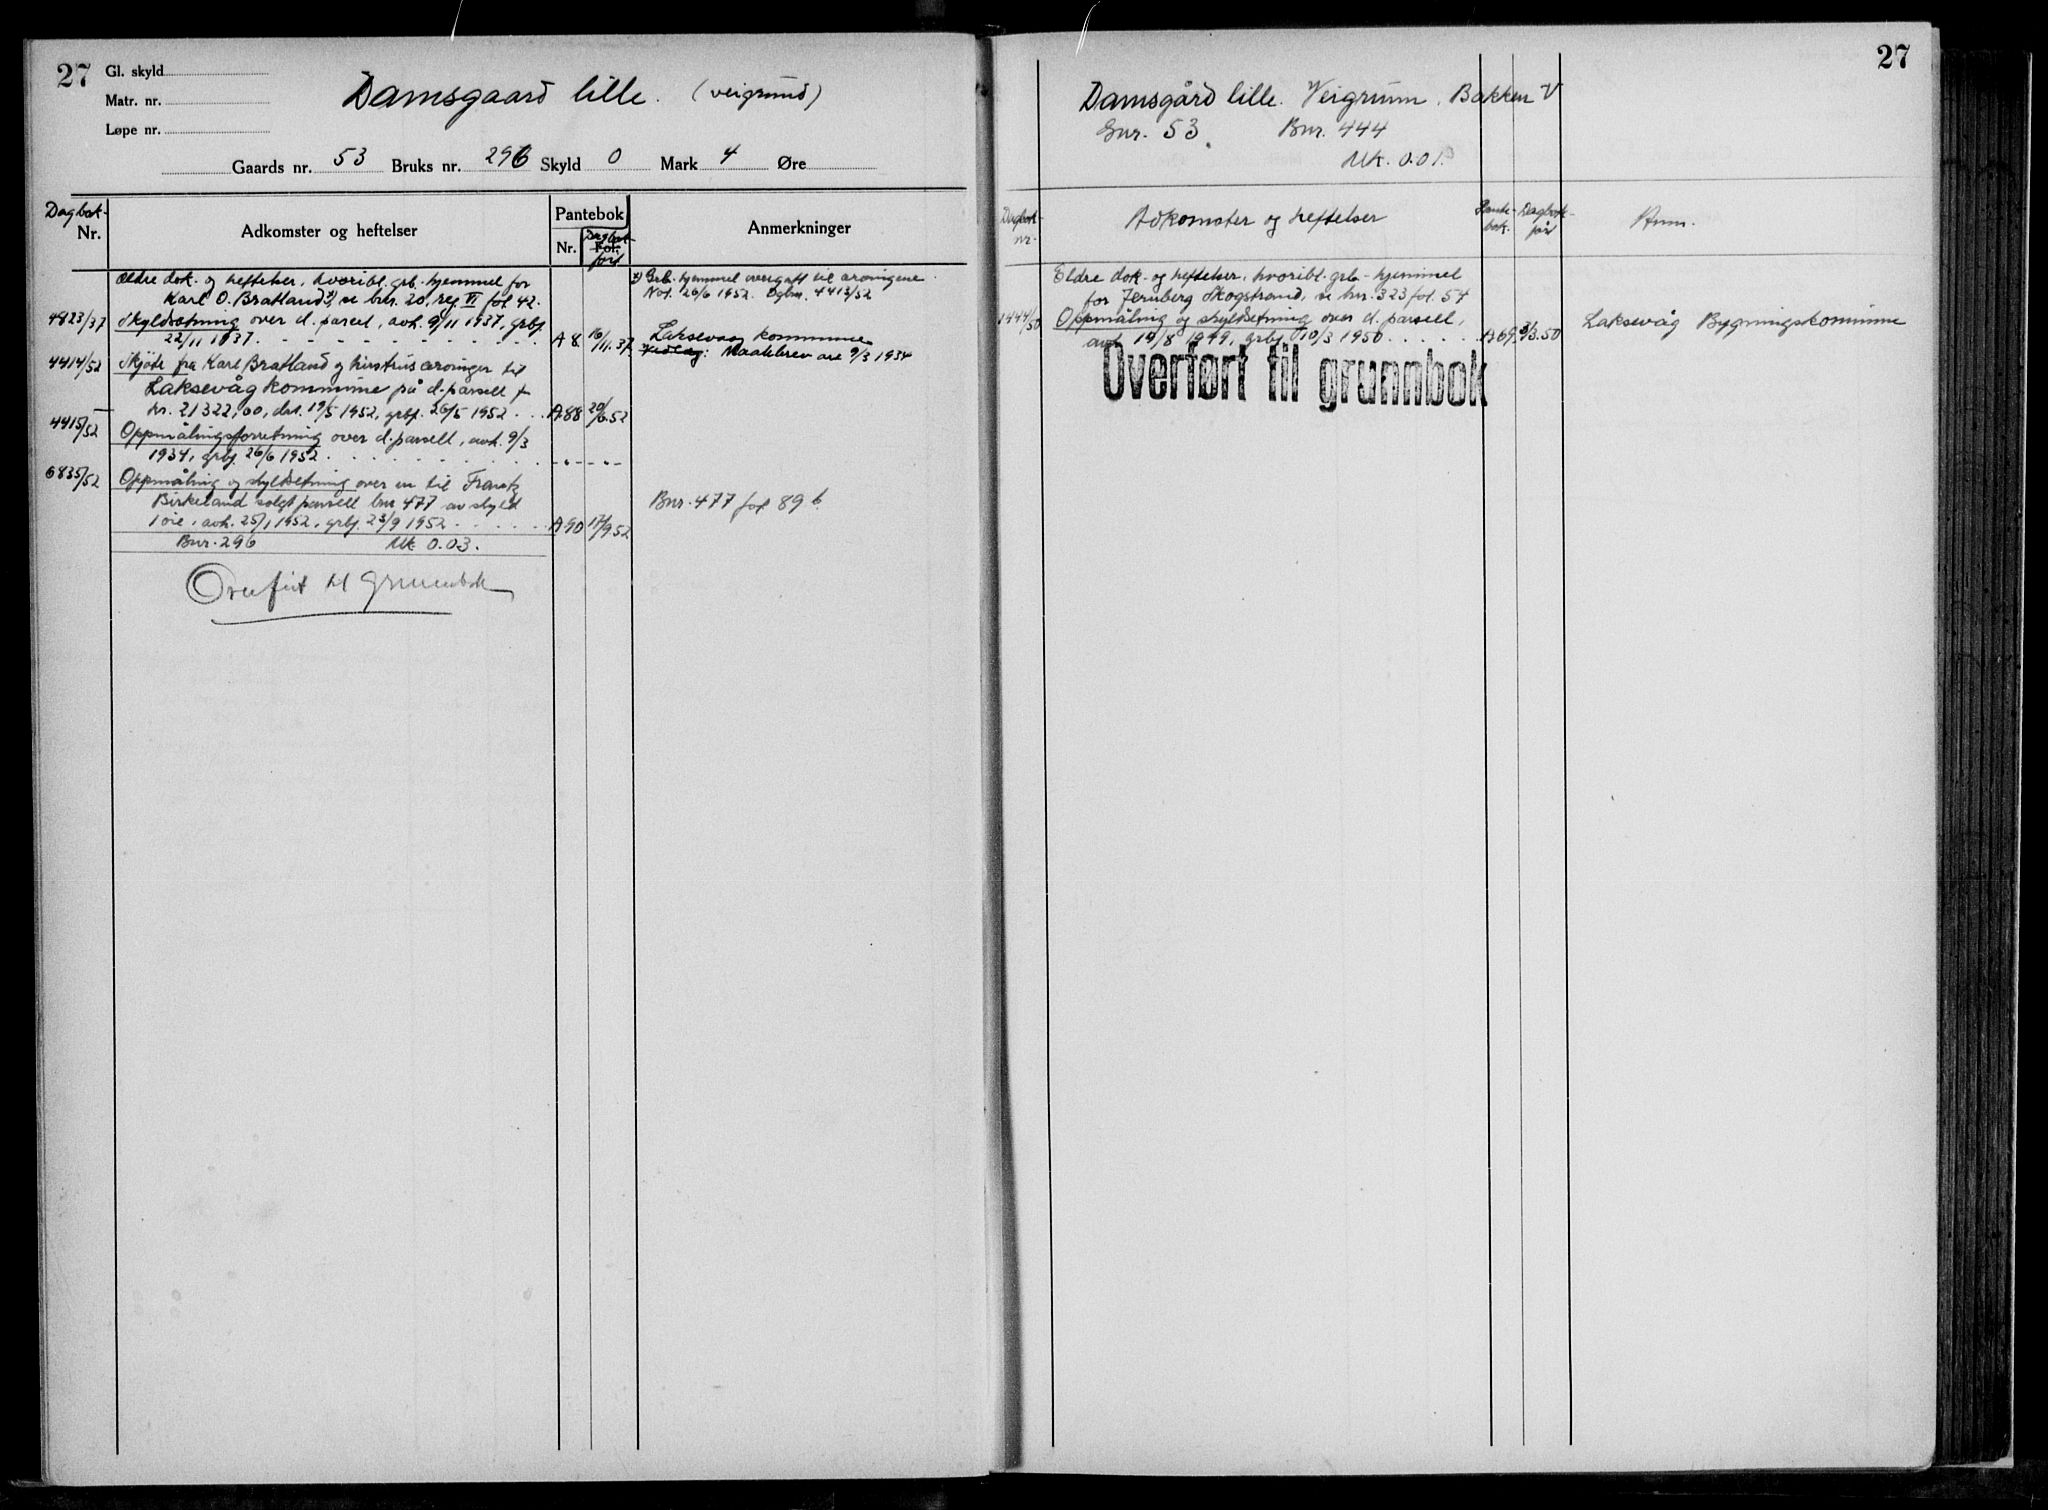 27
Gl. skyld
Matr. nr.
Løpe nr.
Damsgaard lille. (veigrund)
Gaards nr. 53 Bruks nr. 296 Skyld 0 Mark 4 Øre
Dagbok-
Nr.
Adkomster og heftelser
Pantebok
Nr.
Fol.
Dagbok-
ført
Anmerkninger
Ældre dok. og heftelser, hvoribl. grb. hjemmel for
Karl O. Bratland x), se bnr. 20, reg. VI fol 42.
x) Grb. hjemmel overgått til arvingene
Not. 26/6 1952. Dgbnr. 4413/52
4823/37 Skyldsetning over d. parcel, avh. 9/11 1937, grbf.
22/11 1937. A 8 16/11.37
Laksevaag kommune
Maalebrev av 9/3 1934
4414/52 Skjöte fra Karl Bratland og hustrus arvinger til
Laksevåg kommune på d. parsell for
kr. 21322,00, dat. 19/5 1952, grbf. 26/6 1952 A 88 20/6.52
4415/52 Oppmålingsforretning over d. parsell, avh. 9/3
1934, grbf. 26/6 1952. - " - - " -
6835/52 Oppmåling og skyldsetning over en til Frantz
Birkeland solgt parsell bnr 477 av skyld
1 öre, avh. 25/1 1952, grbf. 23/9 1952 A 90 17/9.52
Bnr. 477 fol 89 b
Bnr. 296 Mk 0.03.
Overført til Grunnbok
27
Damsgård lille. Veigrunn. Bakken V
Gnr. 53. Bnr. 444
Mk. 0.01.
Dagbok-
nr.
Adkomster og heftelser
Pante-
bok.
Dagbok-
ført
Anm.
Eldre dok. og heftelser, hvoribl. grb-hjemmel
for Jernberg Skogstrand, se bnr. 323 fol. 54
1444/50 Oppmåling og skyldsetning over d. parsell,
avh 19/8 1949, grbf. 10/3 1950 A 69 3/3.50
Laksevåg Bygningskommune
Overført til grunnbok